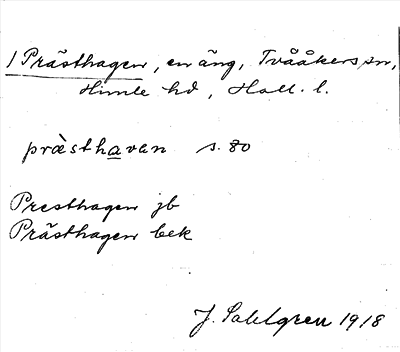 1 Prästhagen, en äng, Tvååkers sn,
Himle hd, Hall. l.
præ̀sthavan s. 80
Presthagen jb
Prästhagen bek
J. Sahlgren 1918